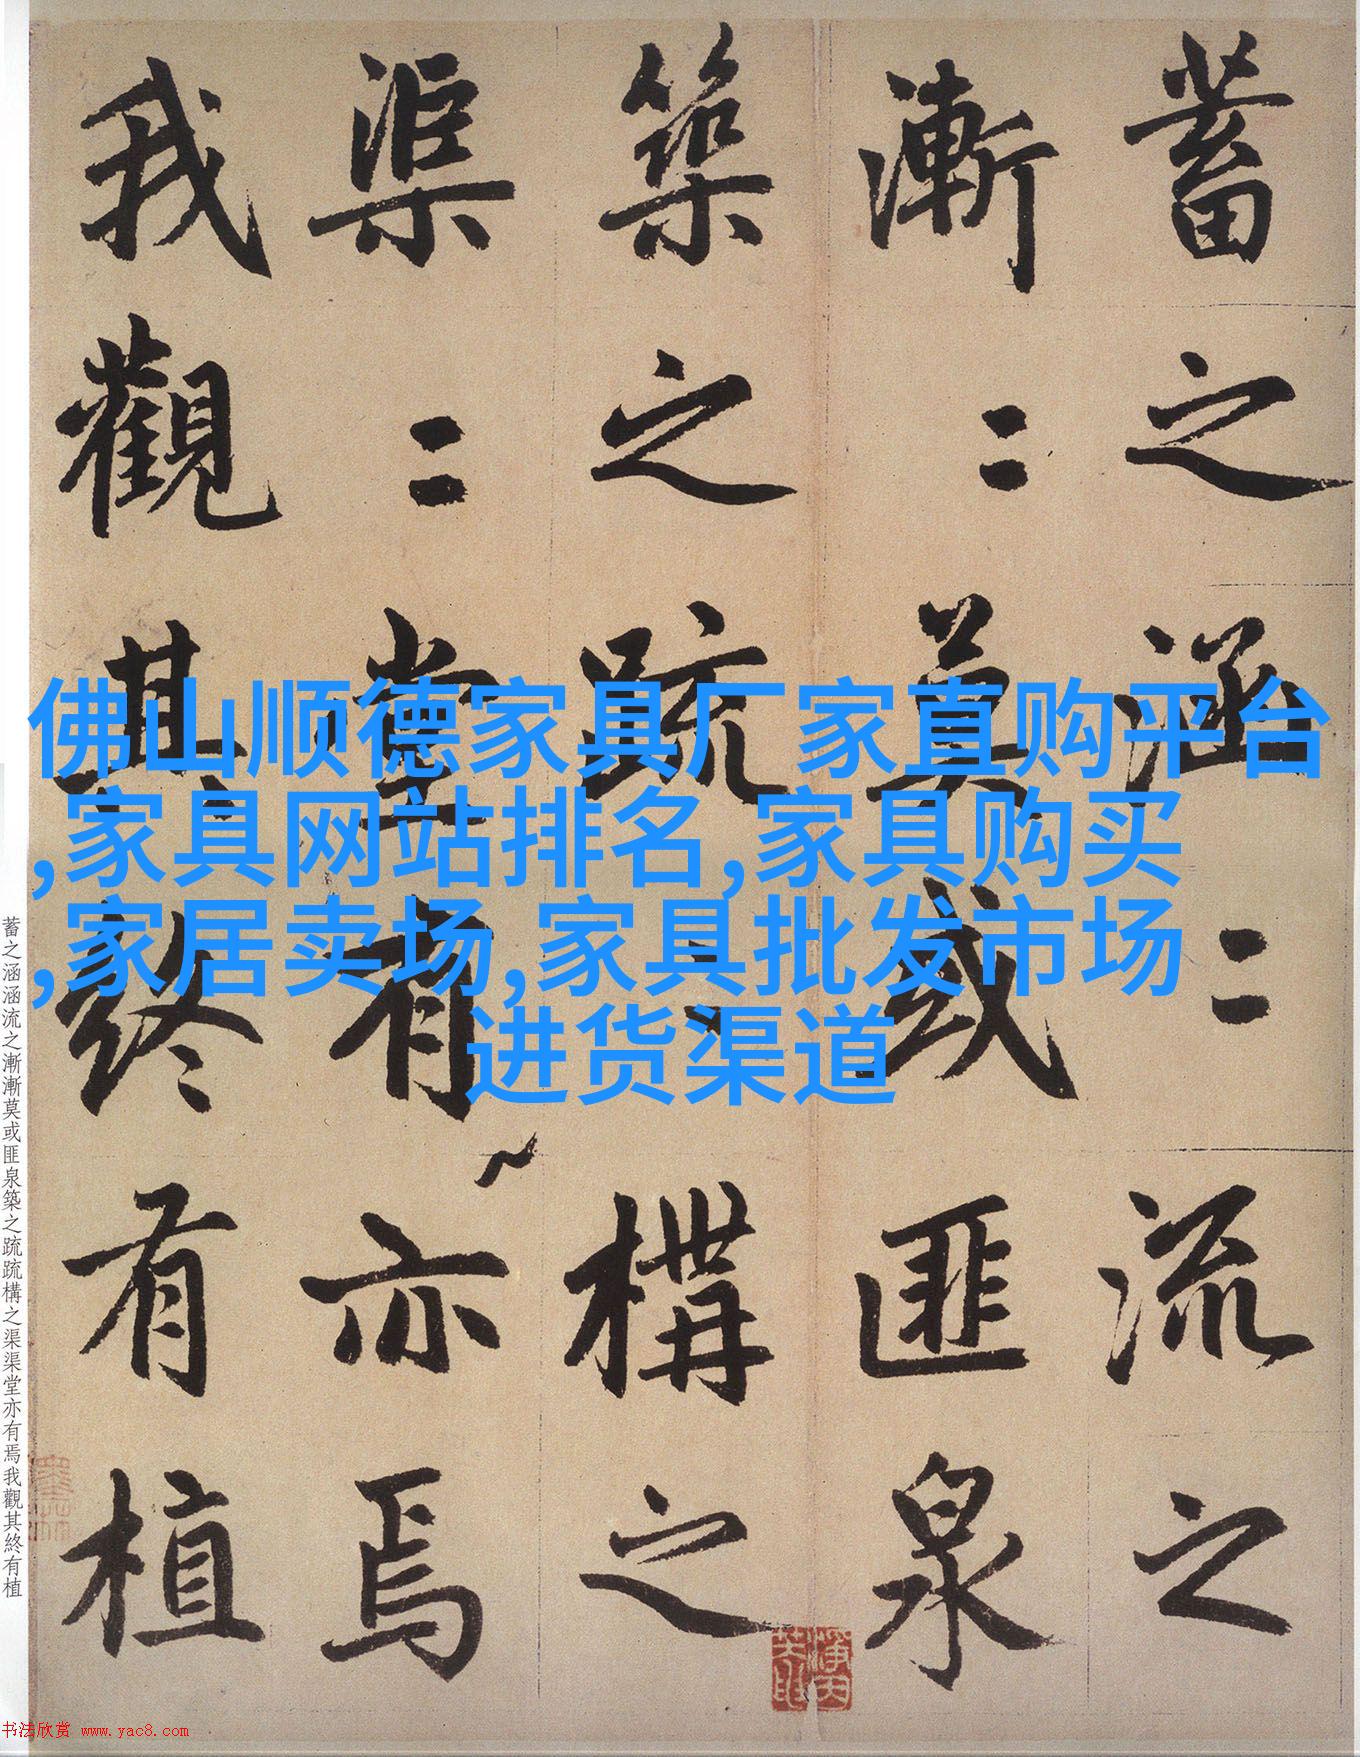 蓄之涵二流之
漸二莫或匪泉
築之疏二構之
渠二堂有亦焉
我觀其終有植
佛山顺德家具厂家直购平台
,家具网站排名,家具购买
,家居卖场,家具批发市场
进货渠道
蓄之涵涵流之漸漸莫或匪泉築之疏疏構之渠渠堂亦有焉我觀其終有植
书法欣赏 www.yac8.com